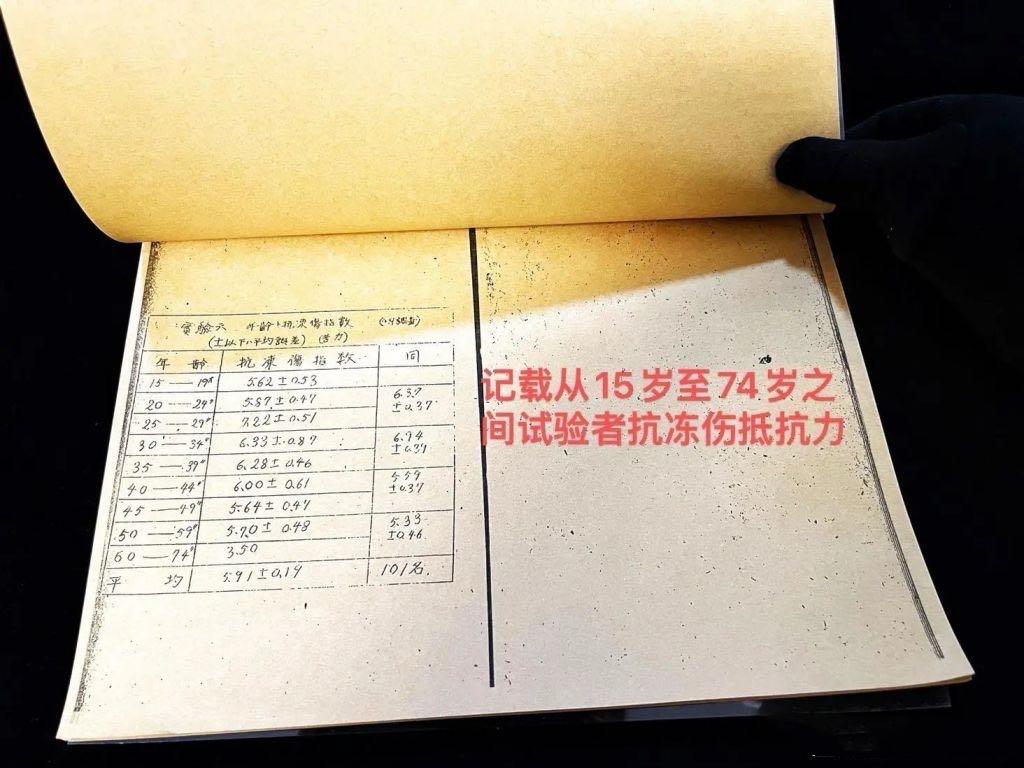 實驗六 年齡ト抗凍傷指数
(土以下ハ平均誤差) (苦力)
年 齡 抗凍傷指数 同
15—19" 5.62±0.53
20—24" 5.87±0.47 6.39 ±0.37
25—29" 7.22±0.51
30—34" 6.33±0.87 6.94 ±0.39
35—39" 6.28±0.46
40—44" 6.00±0.61 5.59 ±0.37
45—49" 5.64±0.47
50—59" 5.70±0.48 5.33 ±0.46
60—74" 3.50
平 均 5.91±0.19 101名
记载从15岁至74岁之
间试验者抗冻伤抵抗力